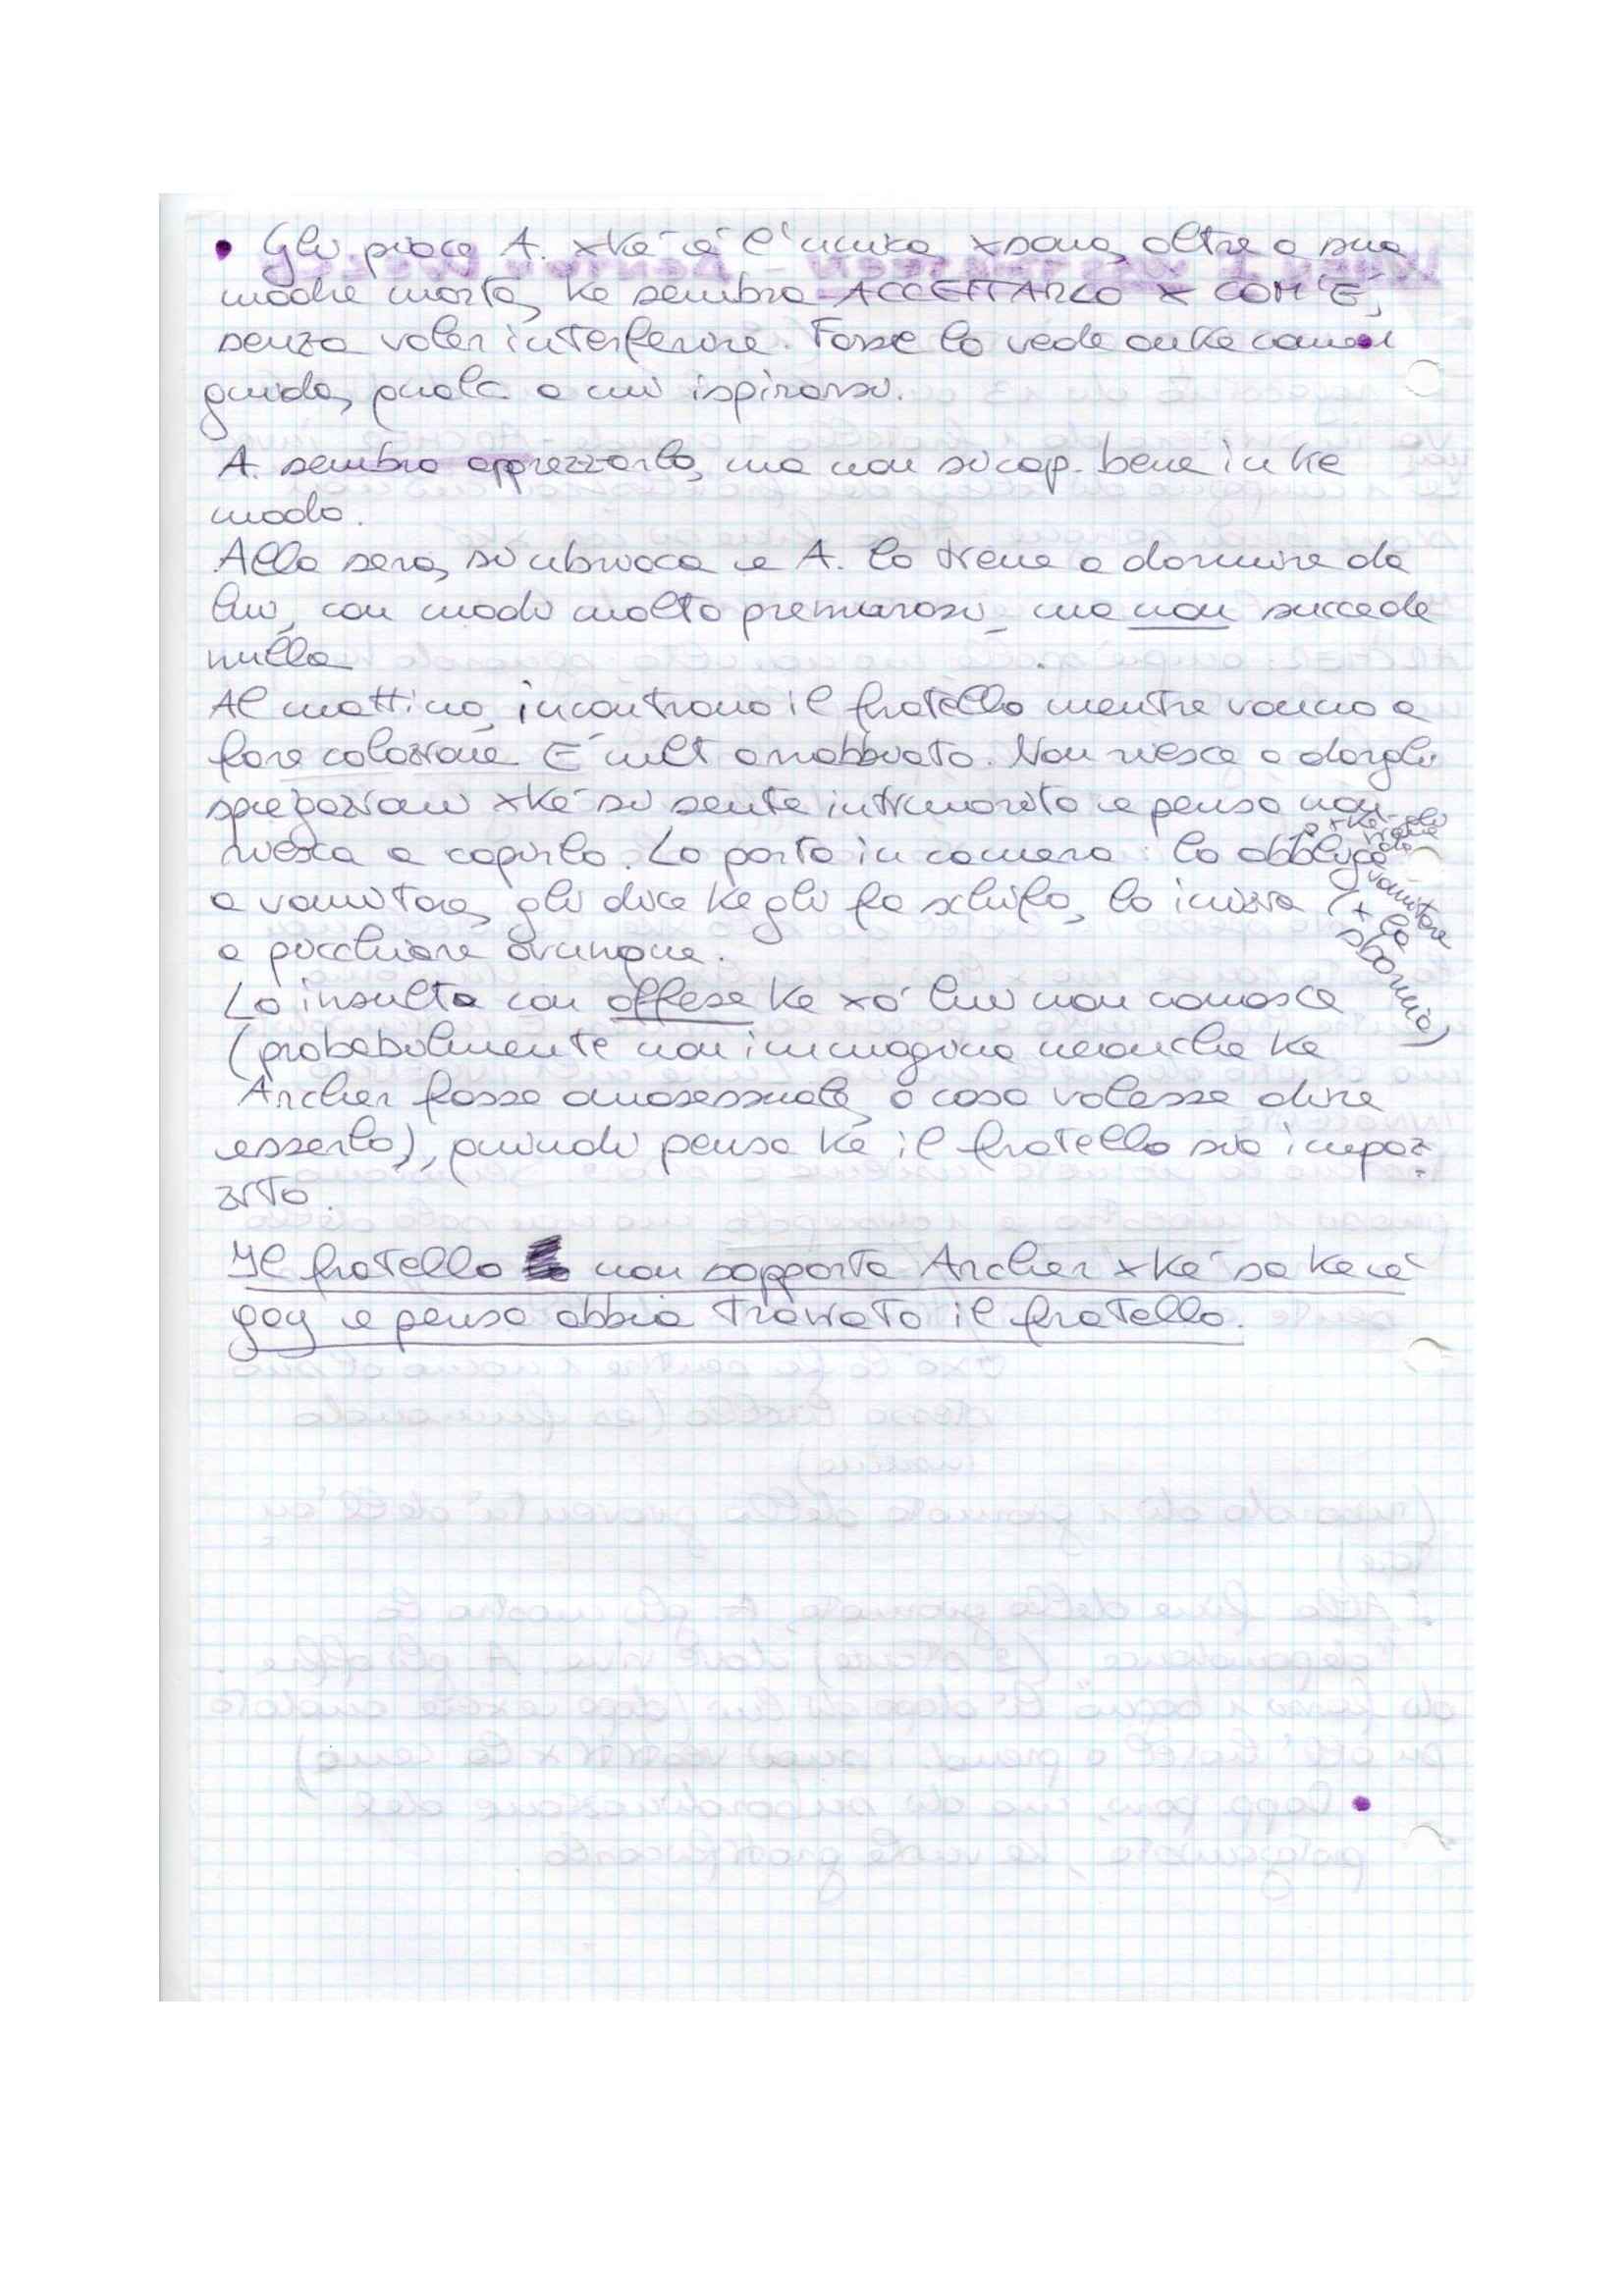 • Gli piace A. xké é l'unica xsona, oltre a sua
madre morta, ke sembra ACCETTARLO X COM'É,
senza voler interferire. Forse lo vede anke come 1
guida, qualc. a cui ispirarsi.
A. sembra apprezzarlo, ma non si cap. bene in ke
modo.
Alla sera, si ubriaca e A. lo tiene a dormire da
lui, con modi molto premurosi, ma non succede
nulla
Al mattino, incontrano il fratello mentre vanno a
fare colazione. É arrabbiato. Non riesce a dargli
spiegazioni xké si sente intimorito e pensa non
riesca a capirlo. Lo porta in camera: lo obbliga
a vomitare, gli dice ke gli fa schifo, lo inizia
vomitare
(x la
sbornia)
a picchiare ovunque.
Lo insulta con offese ke xó lui non conosce
(probabilmente non immagina neanche ke
Archer fosse omosessuale, o cosa volesse dire
esserlo), quindi pensa ke il fratello sia impaz-
zito.
Il fratello non sopporta Archer xké sa ke é
gay e pensa abbia traviato il fratello.